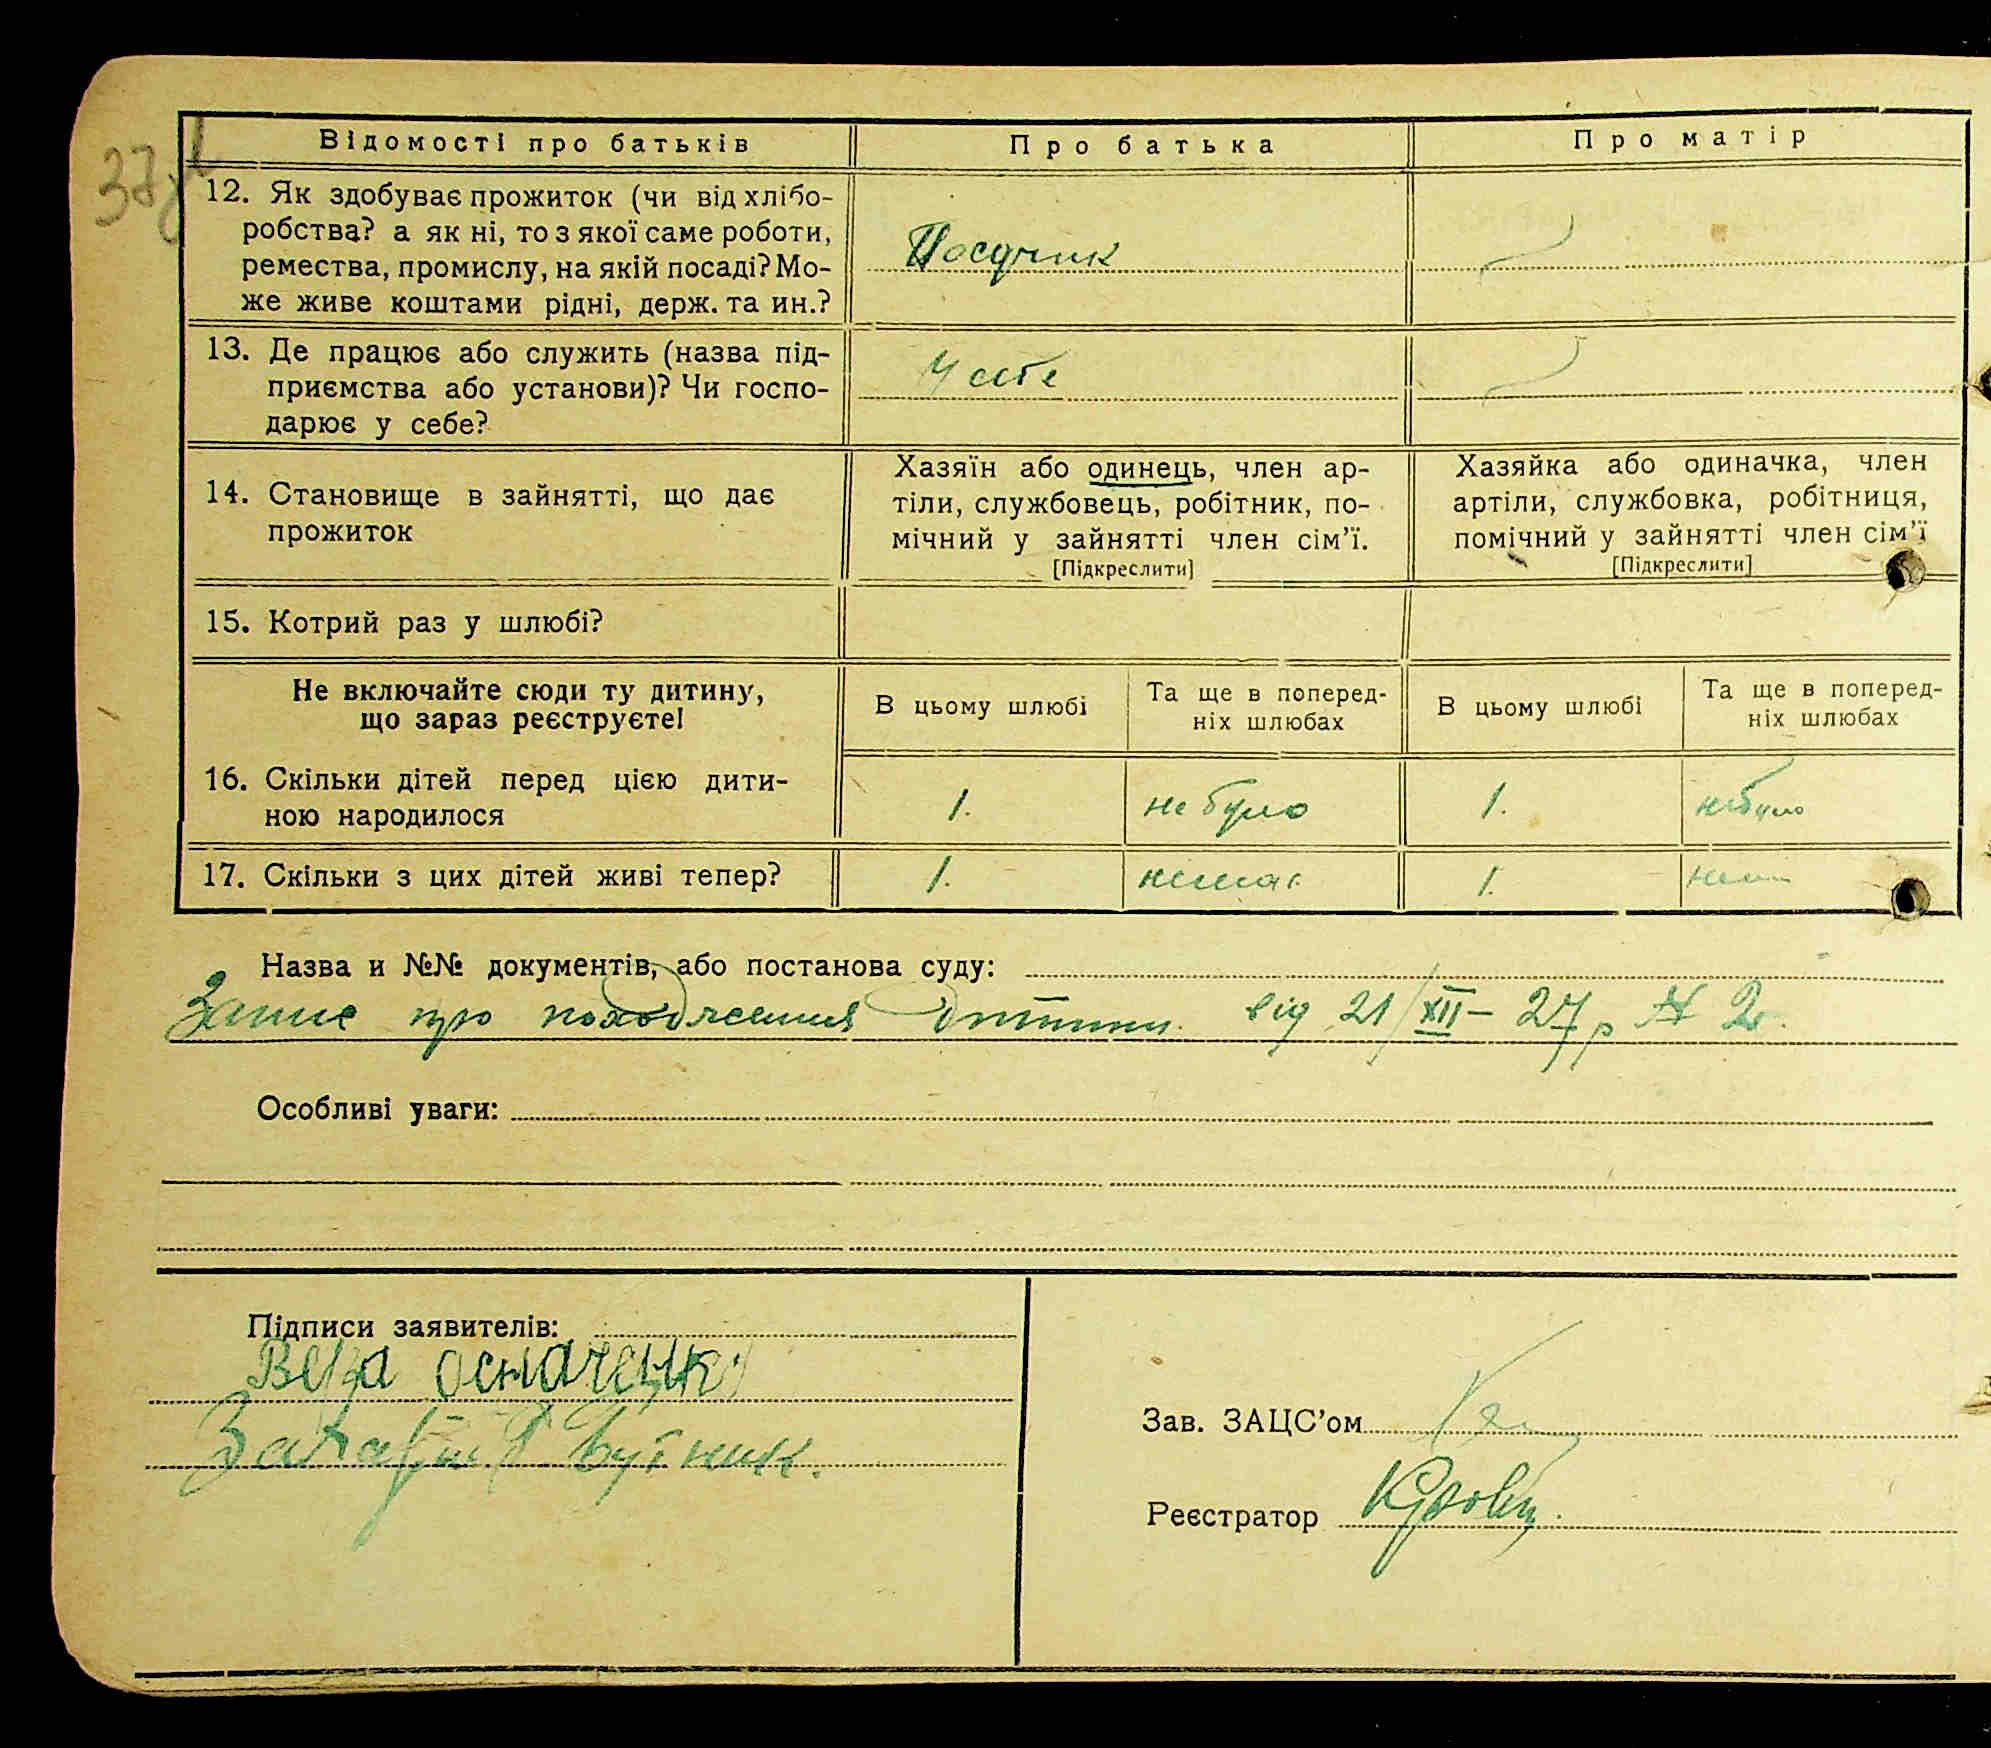 Відомості про батьків Про батька Про матір
12. Як здобуває прожиток (чи від хлібо-
робства? а як ні, то з якої саме роботи,
ремества, промислу, на якій посаді? Мо-
же живе коштами рідні, держ. та ин.?
13. Де працює або служить (назва під-
приємства або установи)? Чи госпо-
дарює у себе?
14. Становище в зайнятті, що дає
прожиток
Хазяїн або одинець, член ар-
тіли, службовець, робітник, по-
мічний у зайнятті член сім'ї.
[Підкреслити]
Хазяйка або одиначка, член
артіли, службовка, робітниця,
помічний у зайнятті член сім'ї
[Підкреслити]
15. Котрий раз у шлюбі?
Не включайте сюди ту дитину,
що зараз реєструєте!
В цьому шлюбі
Та ще в поперед-
ніх шлюбах
В цьому шлюбі
Та ще в поперед-
ніх шлюбах
16. Скільки дітей перед цією дити-
ною народилося
1. не було 1. не було
17. Скільки з цих дітей живі тепер?
1. немає 1.
Назва и №№ документів, або постанова суду:
Запис про походження дитини від 21/XII-27 р № 2
Особливі уваги:
Підписи заявителів:
Вера
Зав. ЗАЦС'ом
Реєстратор